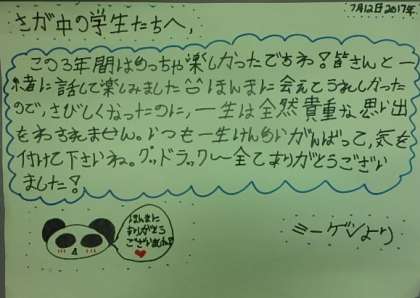 7月12日2017年
さが中の学生たちへ,
この3年間はめっちゃ楽しかったですね!皆さんと一
緒に話して楽しみました^^ほんまに会えてうれしかった
ので,さびしくなったのに,一生は全然貴重な思い出
をわすれません。いつも一生けんめいがんばって,気を
付けて下さいね。グッドラック〜全てありがとうござい
ました!
ほんまに
ありがとう
ございました
ミーゲンより